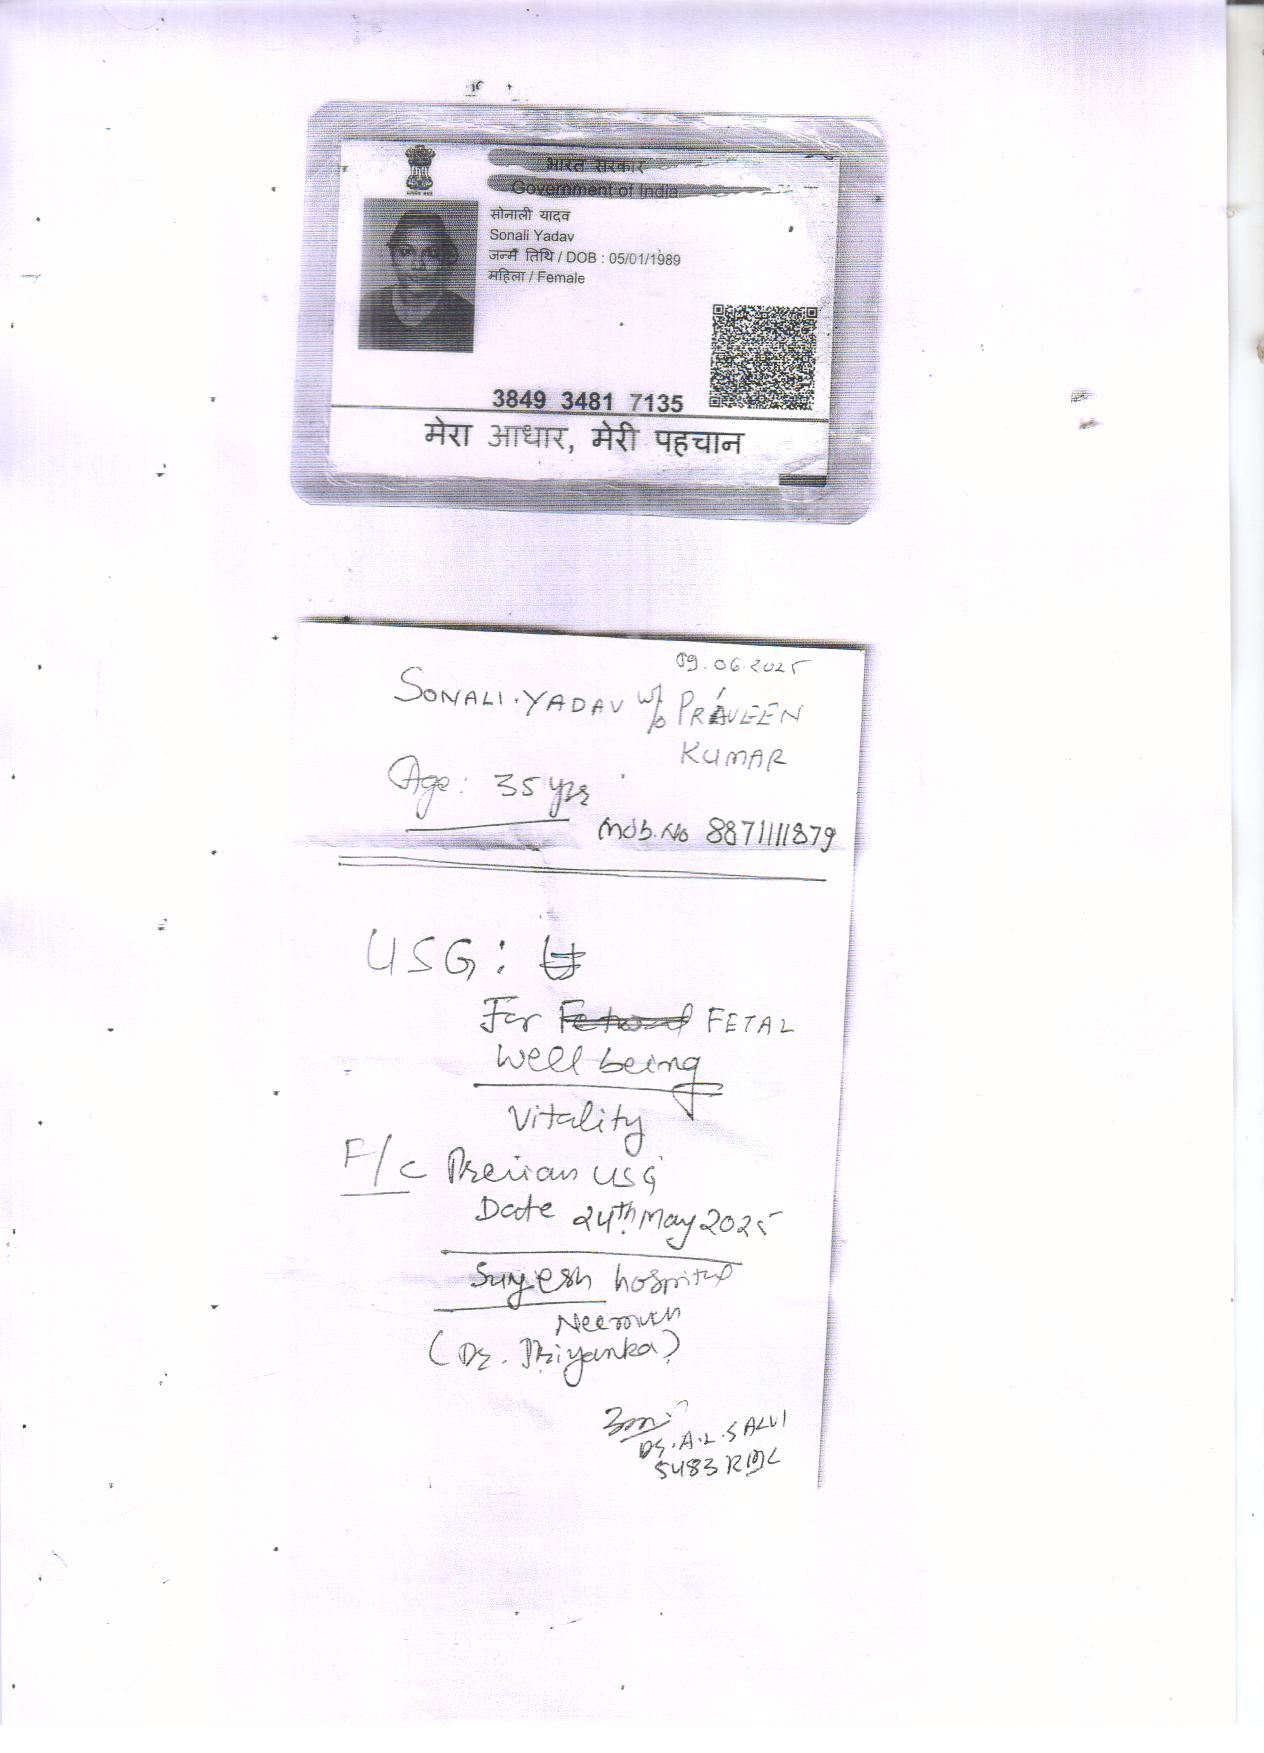 भारत सरकार
Government of India
सोनाली यादव
Sonali Yadav
जन्म तिथि / DOB : 05/01/1989
महिला / Female
3849 3481 7135
मेरा आधार, मेरी पहचान
09.06.2025
SONALI.YADAV w/o PRAVEEN
KUMAR
Age: 35 yrs
Mob.No 8871111879
USG:
For FETAL
Well being
Vitality
F/c USG
Date 24th May 2025
hospital
(Dr. Priyanka)
Dr. A.L. SALVI
5483 RMC